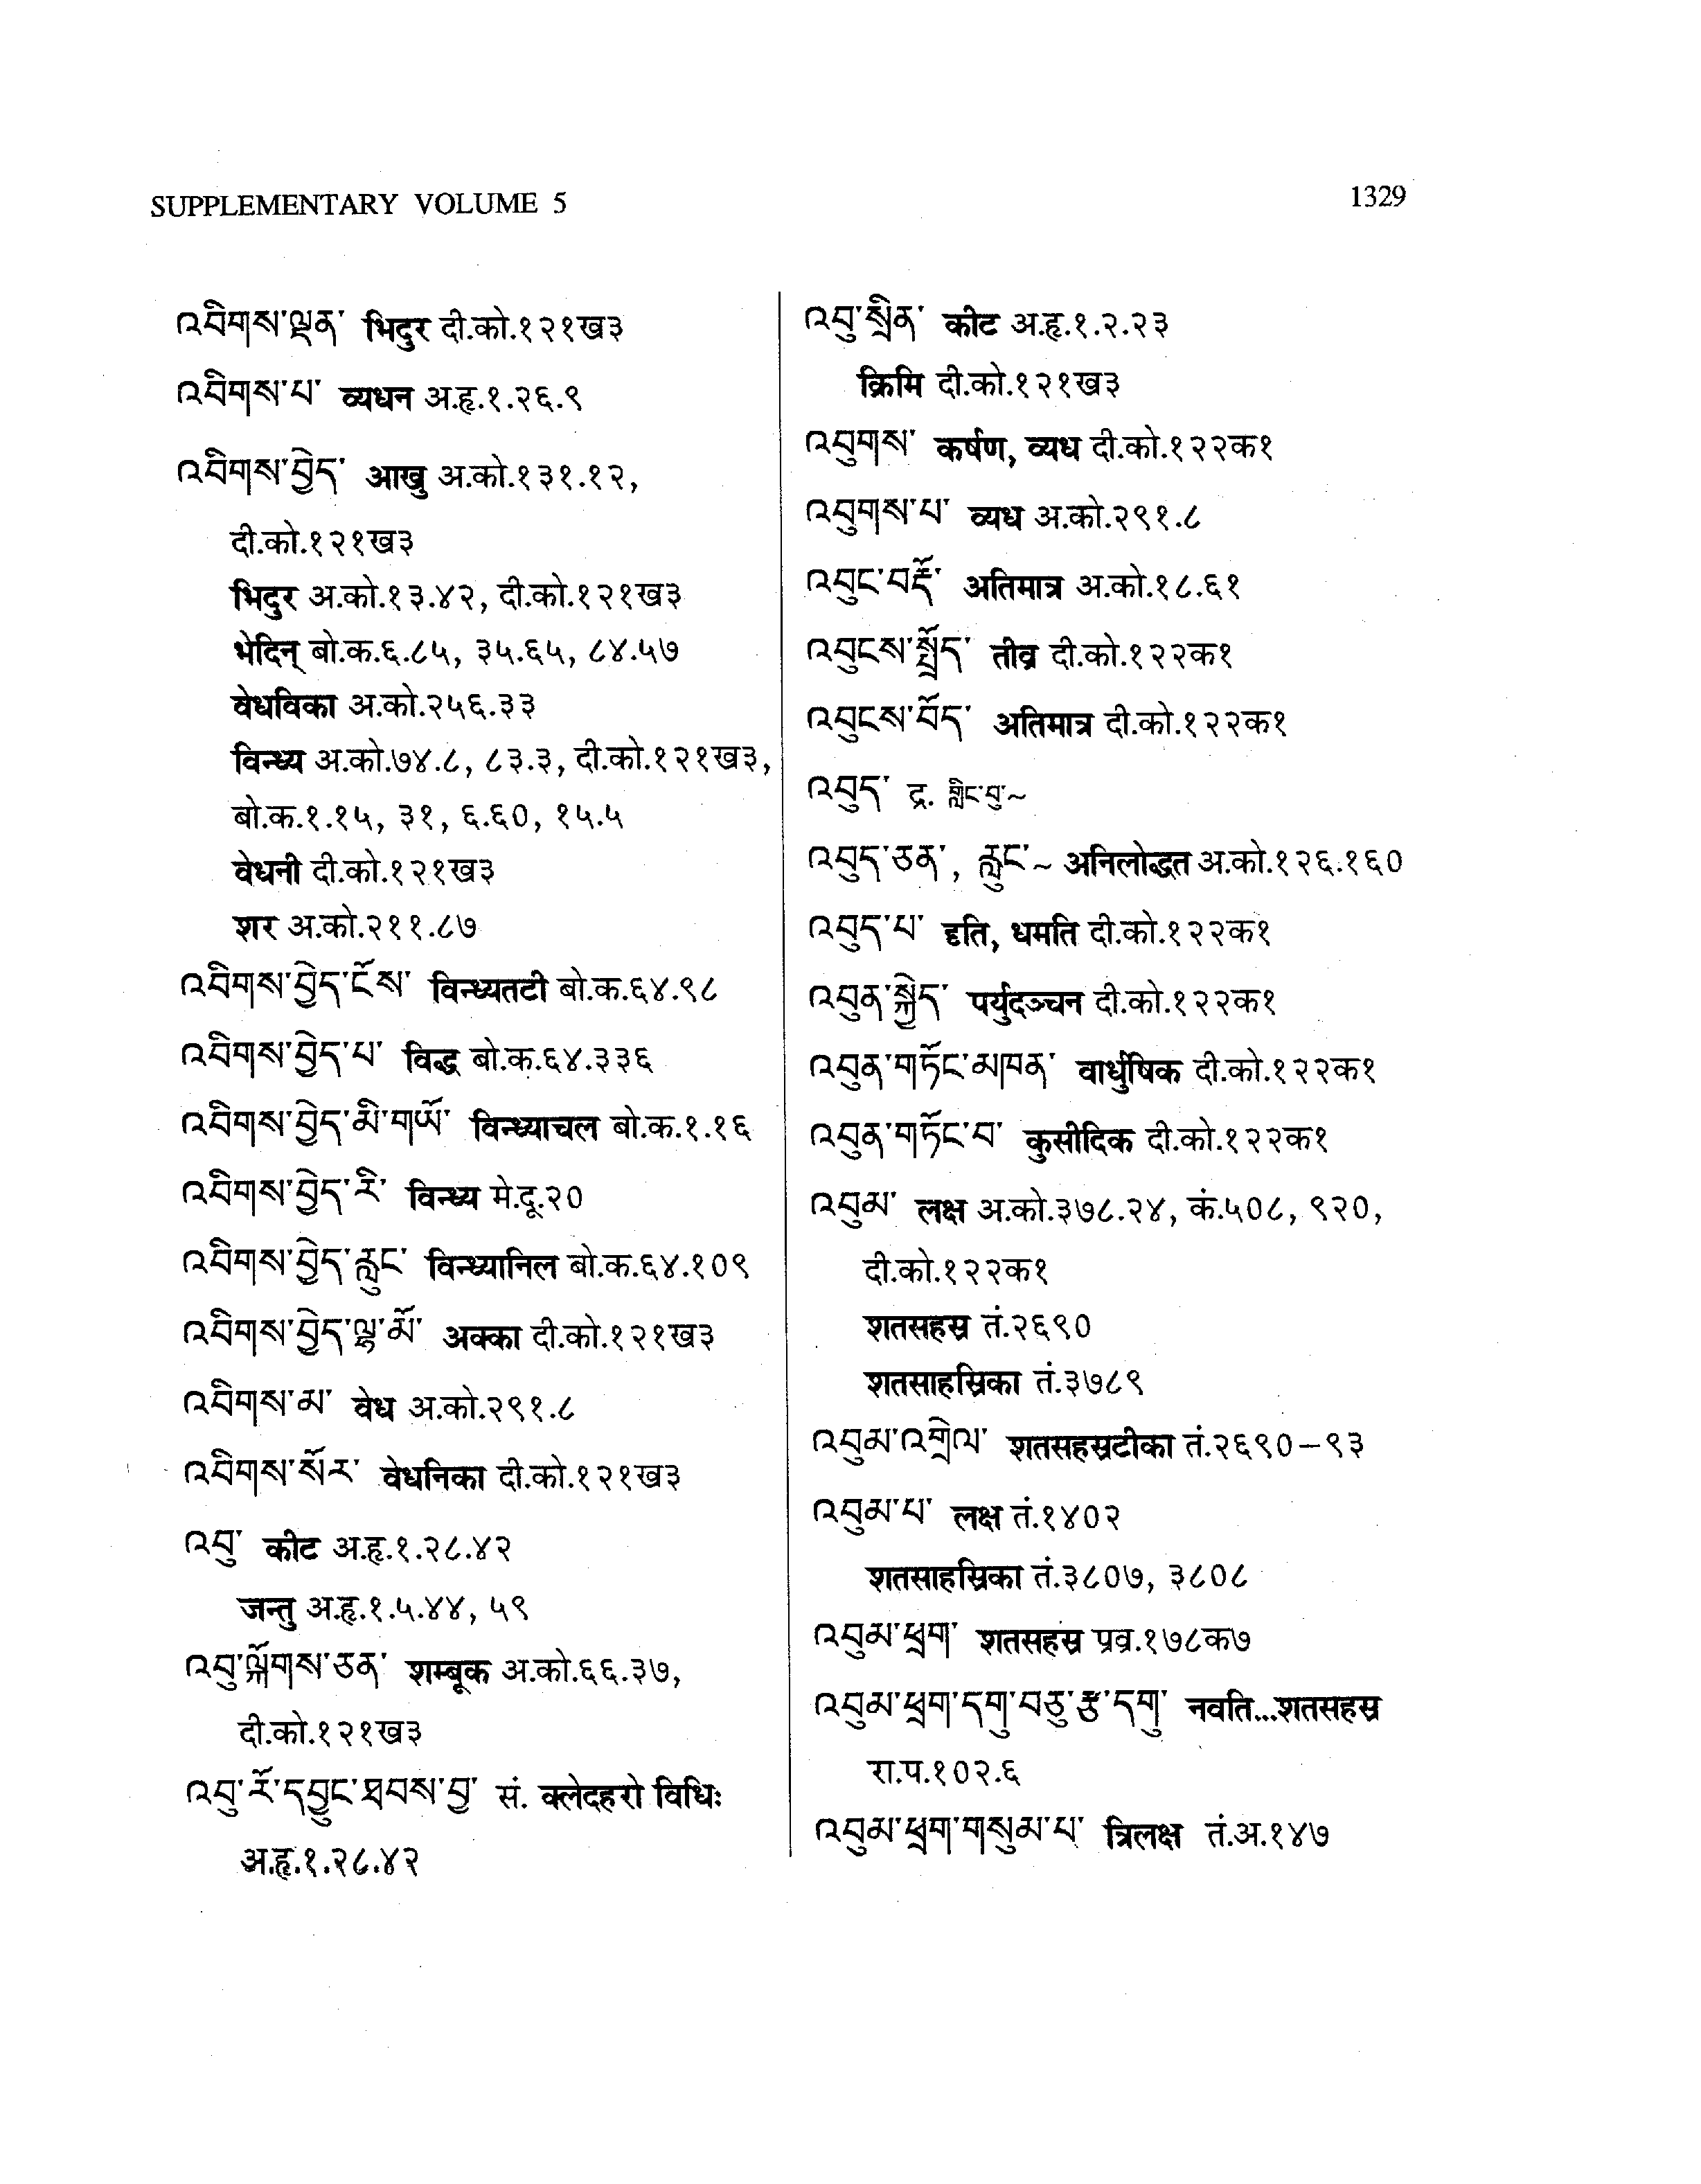 SUPPLEMENTARY VOLUME 5
1329
འབིགས་ལྡན་ भिदुर दी.को.१२१ख३
འབིགས་པ་ व्यधन अ.हृ.१.२६.९
འབིགས་བྱེད་ आखु अ.को.१३१.१२,
दी.को.१२१ख३
भिदुर अ.को.१३.४२, दी.को.१२१ख३
भेदिन् बो.क.६.८५, ३५.६५, ८४.५७
वेधविका अ.को.२५६.३३
विन्ध्य अ.को.७४.८, ८३.३, दी.को.१२१ख३,
बो.क.१.१५, ३१, ६.६०, १५.५
वेधनी दी.को.१२१ख३
शर अ.को.२११.८७
འབིགས་བྱེད་ངོས་ विन्ध्यतटी बो.क.६४.९८
འབིགས་བྱེད་པ་ विद्ध बो.क.६४.३३६
འབིགས་བྱེད་མི་གཡོ་ विन्ध्याचल बो.क.१.१६
འབིགས་བྱེད་རི་ विन्ध्य मे.दू.२०
འབིགས་བྱེད་རླུང་ विन्ध्यानिल बो.क.६४.१०९
འབིགས་བྱེད་ལྷ་མོ་ अक्का दी.को.१२१ख३
འབིགས་མ་ वेध अ.को.२९१.८
འབིགས་སོར་ वेधनिका दी.को.१२१ख३
འབུ་ कीट अ.हृ.१.२८.४२
जन्तु अ.हृ.१.५.४४, ५९
འབུ་ལྐོགས་ཅན་ शम्बूक अ.को.६६.३७,
दी.को.१२१ख३
འབུ་རོ་དབྱུང་ཐབས་བྱ་ सं. क्लेदहरो विधिः
अ.हृ.१.२८.४२
འབུ་སྲིན་ कीट अ.हृ.१.२.२३
क्रिमि दी.को.१२१ख३
འབུགས་ कर्षण, व्यध दी.को.१२२क१
འབུགས་པ་ व्यध अ.को.२९१.८
འབུང་བརྡོ་ अतिमात्र अ.को.१८.६१
འབུངས་སྤྲོད་ तीव्र दी.को.१२२क१
འབུངས་བོད་ अतिमात्र दी.को.१२२क१
འབུད་ द्र. གླིང་བུ་~
འབུད་ཅན་, རླུང་~ अनिलोद्धत अ.को.१२६.१६०
འབུད་པ་ दृति, धमति दी.को.१२२क१
འབུན་སྐྱེད་ पर्युदञ्चन दी.को.१२२क१
འབུན་གཏོང་མཁན་ वार्धुषिक दी.को.१२२क१
འབུན་གཏོང་བ་ कुसीदिक दी.को.१२२क१
འབུམ་ लक्ष अ.को.३७८.२४, कं.५०८, ९२०,
दी.को.१२२क१
शतसहस्र तं.२६९०
शतसाहस्रिका तं.३७८९
འབུམ་འགྲེལ་ शतसहस्रटीका तं.२६९०-९३
འབུམ་པ་ लक्ष तं.१४०२
शतसाहस्रिका तं.३८०७, ३८०८
འབུམ་ཕྲག་ शतसहस्र प्रव्र.१७८क७
འབུམ་ཕྲག་དགུ་བཅུ་རྩ་དགུ་ नवति...शतसहस्र
रा.प.१०२.६
འབུམ་ཕྲག་གསུམ་པ་ त्रिलक्ष तं.अ.१४७